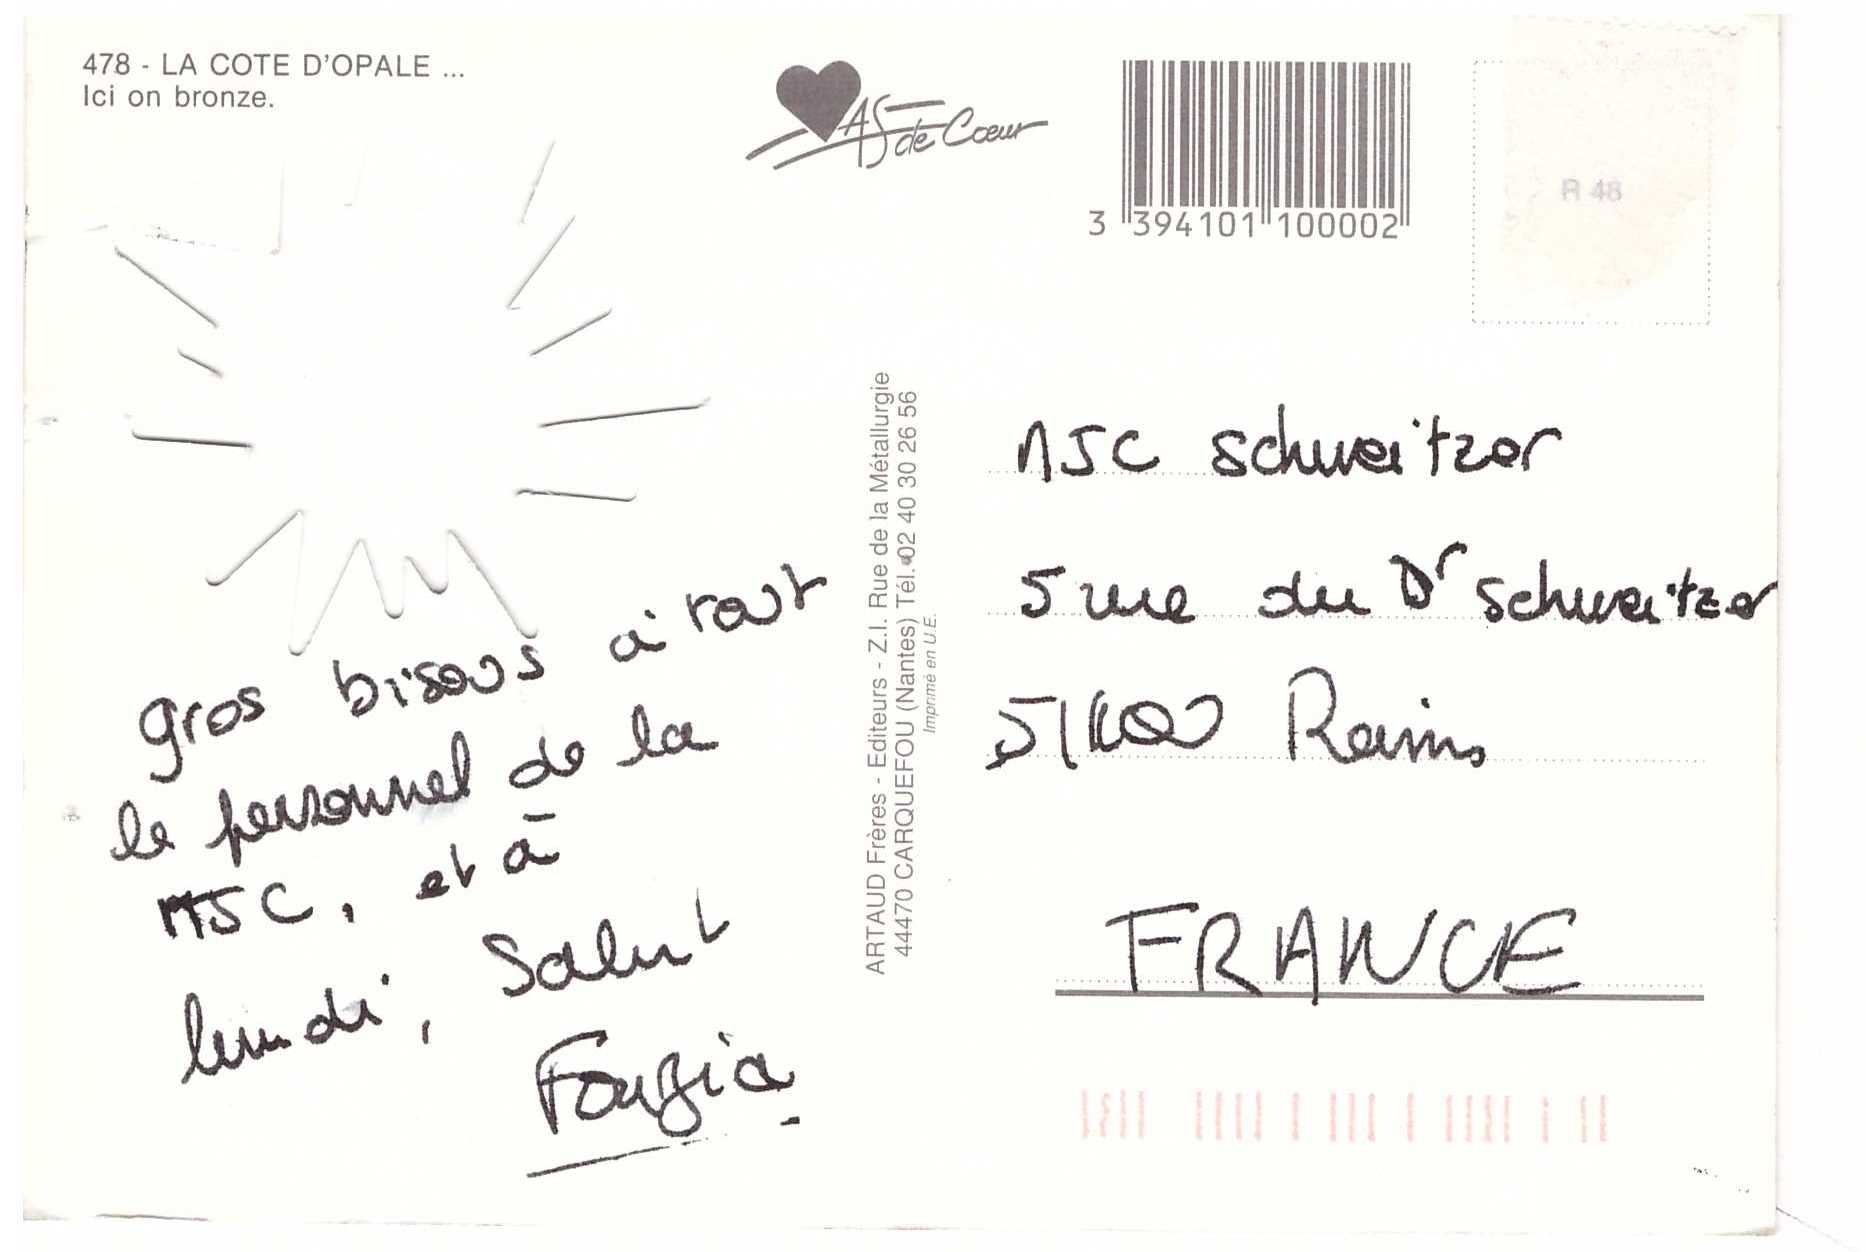 478 - LA COTE D'OPALE ...
Ici on bronze.
AS de Cœur
3 394101 100002
R 48
gros bisous à tout
le personnel de la
MJC, et à
lundi, Salut
Fouzia
ARTAUD Frères - Editeurs - Z.I. Rue de la Métallurgie
44470 CARQUEFOU (Nantes) Tél. 02 40 30 26 56
Imprimé en U.E.
MJC Schweitzer
5 rue du Dr Schweitzer
51100 Reims
FRANCE